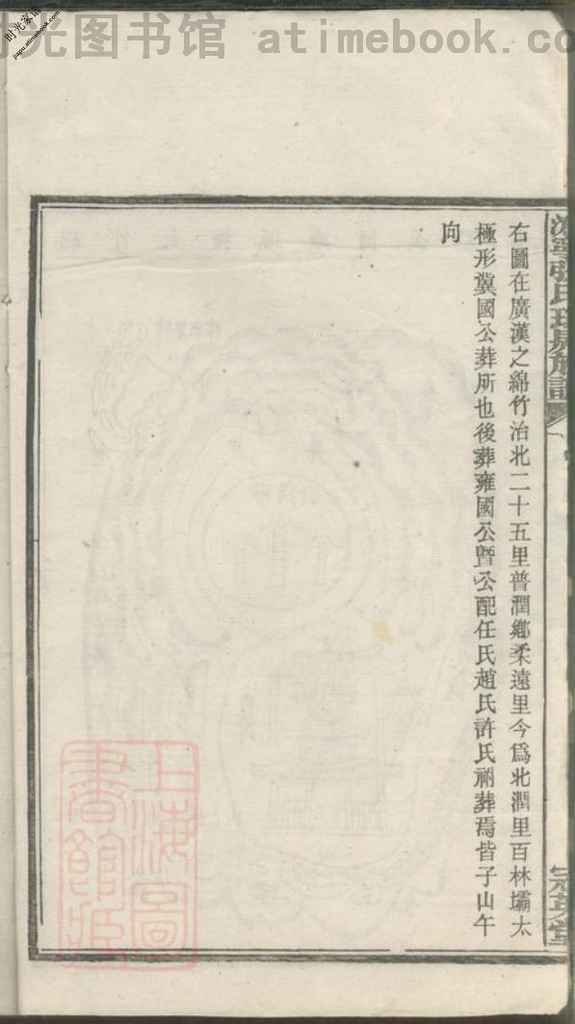 时光图书馆 atimebook.co
时光家谱
右圖在廣漢之綿竹治北二十五里普潤鄉柔遠里今爲北潤里百林壩太
極形冀國公葬所也後葬雍國公暨公配任氏趙氏許氏祔葬焉皆子山午
向
上海圖
書館藏